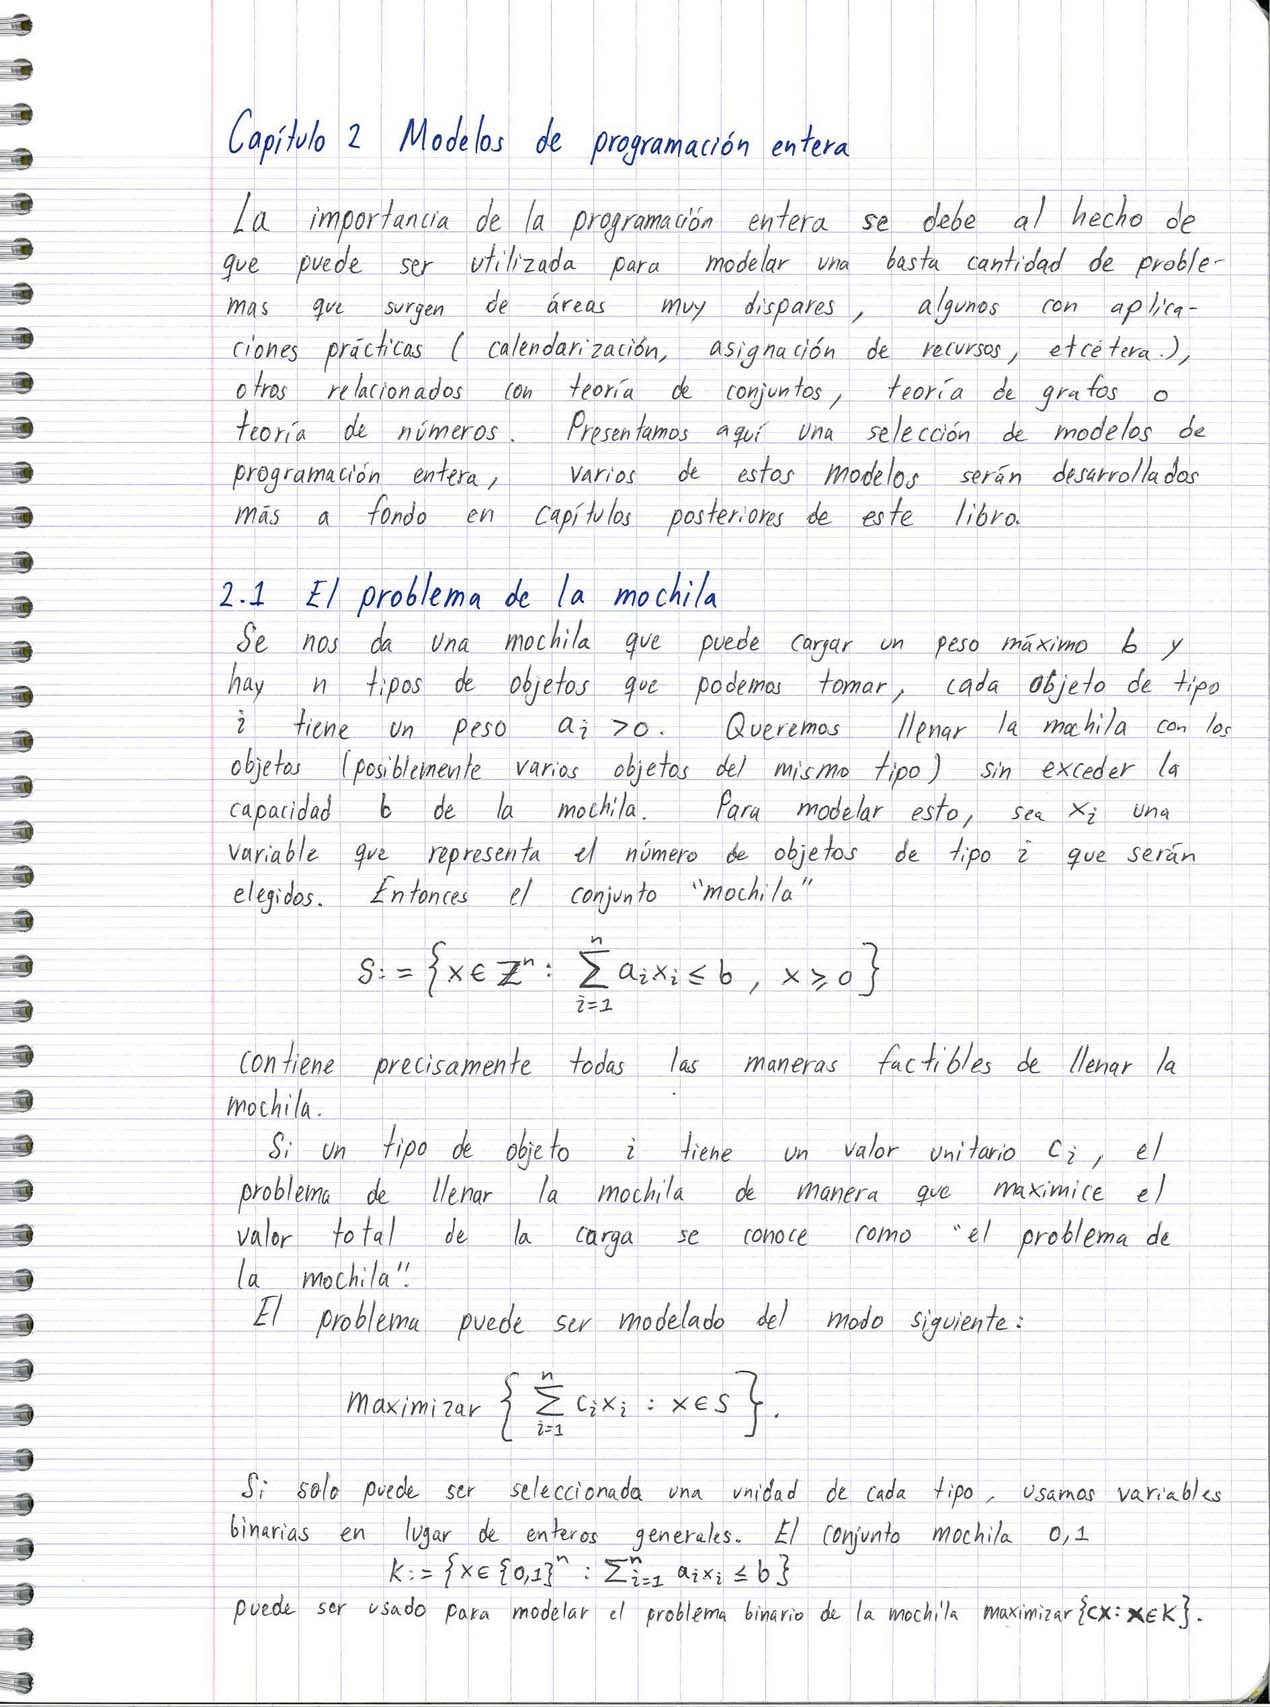 Capítulo 2 Modelos de programación entera
La importancia de la programación entera se debe al hecho de
que puede ser utilizada para modelar una basta cantidad de proble-
mas que surgen de áreas muy dispares, algunos con aplica-
ciones prácticas (calendarización, asignación de recursos, etcétera.),
otros relacionados con teoría de conjuntos, teoría de grafos o
teoría de números. Presentamos aquí una selección de modelos de
programación entera, varios de estos modelos serán desarrollados
más a fondo en capítulos posteriores de este libro.
2.1 El problema de la mochila
Se nos da una mochila que puede cargar un peso máximo b y
hay n tipos de objetos que podemos tomar, cada objeto de tipo
i tiene un peso a_i > 0. Queremos llenar la mochila con los
objetos (posiblemente varios objetos del mismo tipo) sin exceder la
capacidad b de la mochila. Para modelar esto, sea x_i una
variable que representa el número de objetos de tipo i que serán
elegidos. Entonces el conjunto "mochila"
S := {x ∈ ℤ^n : ∑_{i=1}^n a_i x_i ≤ b, x ≥ 0}
contiene precisamente todas las maneras factibles de llenar la
mochila.
Si un tipo de objeto i tiene un valor unitario c_i, el
problema de llenar la mochila de manera que maximice el
valor total de la carga se conoce como "el problema de
la mochila".
El problema puede ser modelado del modo siguiente:
maximizar {∑_{i=1}^n c_i x_i : x ∈ S}.
Si solo puede ser seleccionada una unidad de cada tipo, usamos variables
binarias en lugar de enteros generales. El conjunto mochila 0,1
K := {x ∈ {0,1}^n : ∑_{i=1}^n a_i x_i ≤ b}
puede ser usado para modelar el problema binario de la mochila maximizar {cx : x ∈ K}.